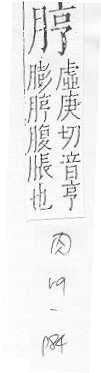 脝
虛庚切音亨
膨脝腹脹也
肉
19
-
084